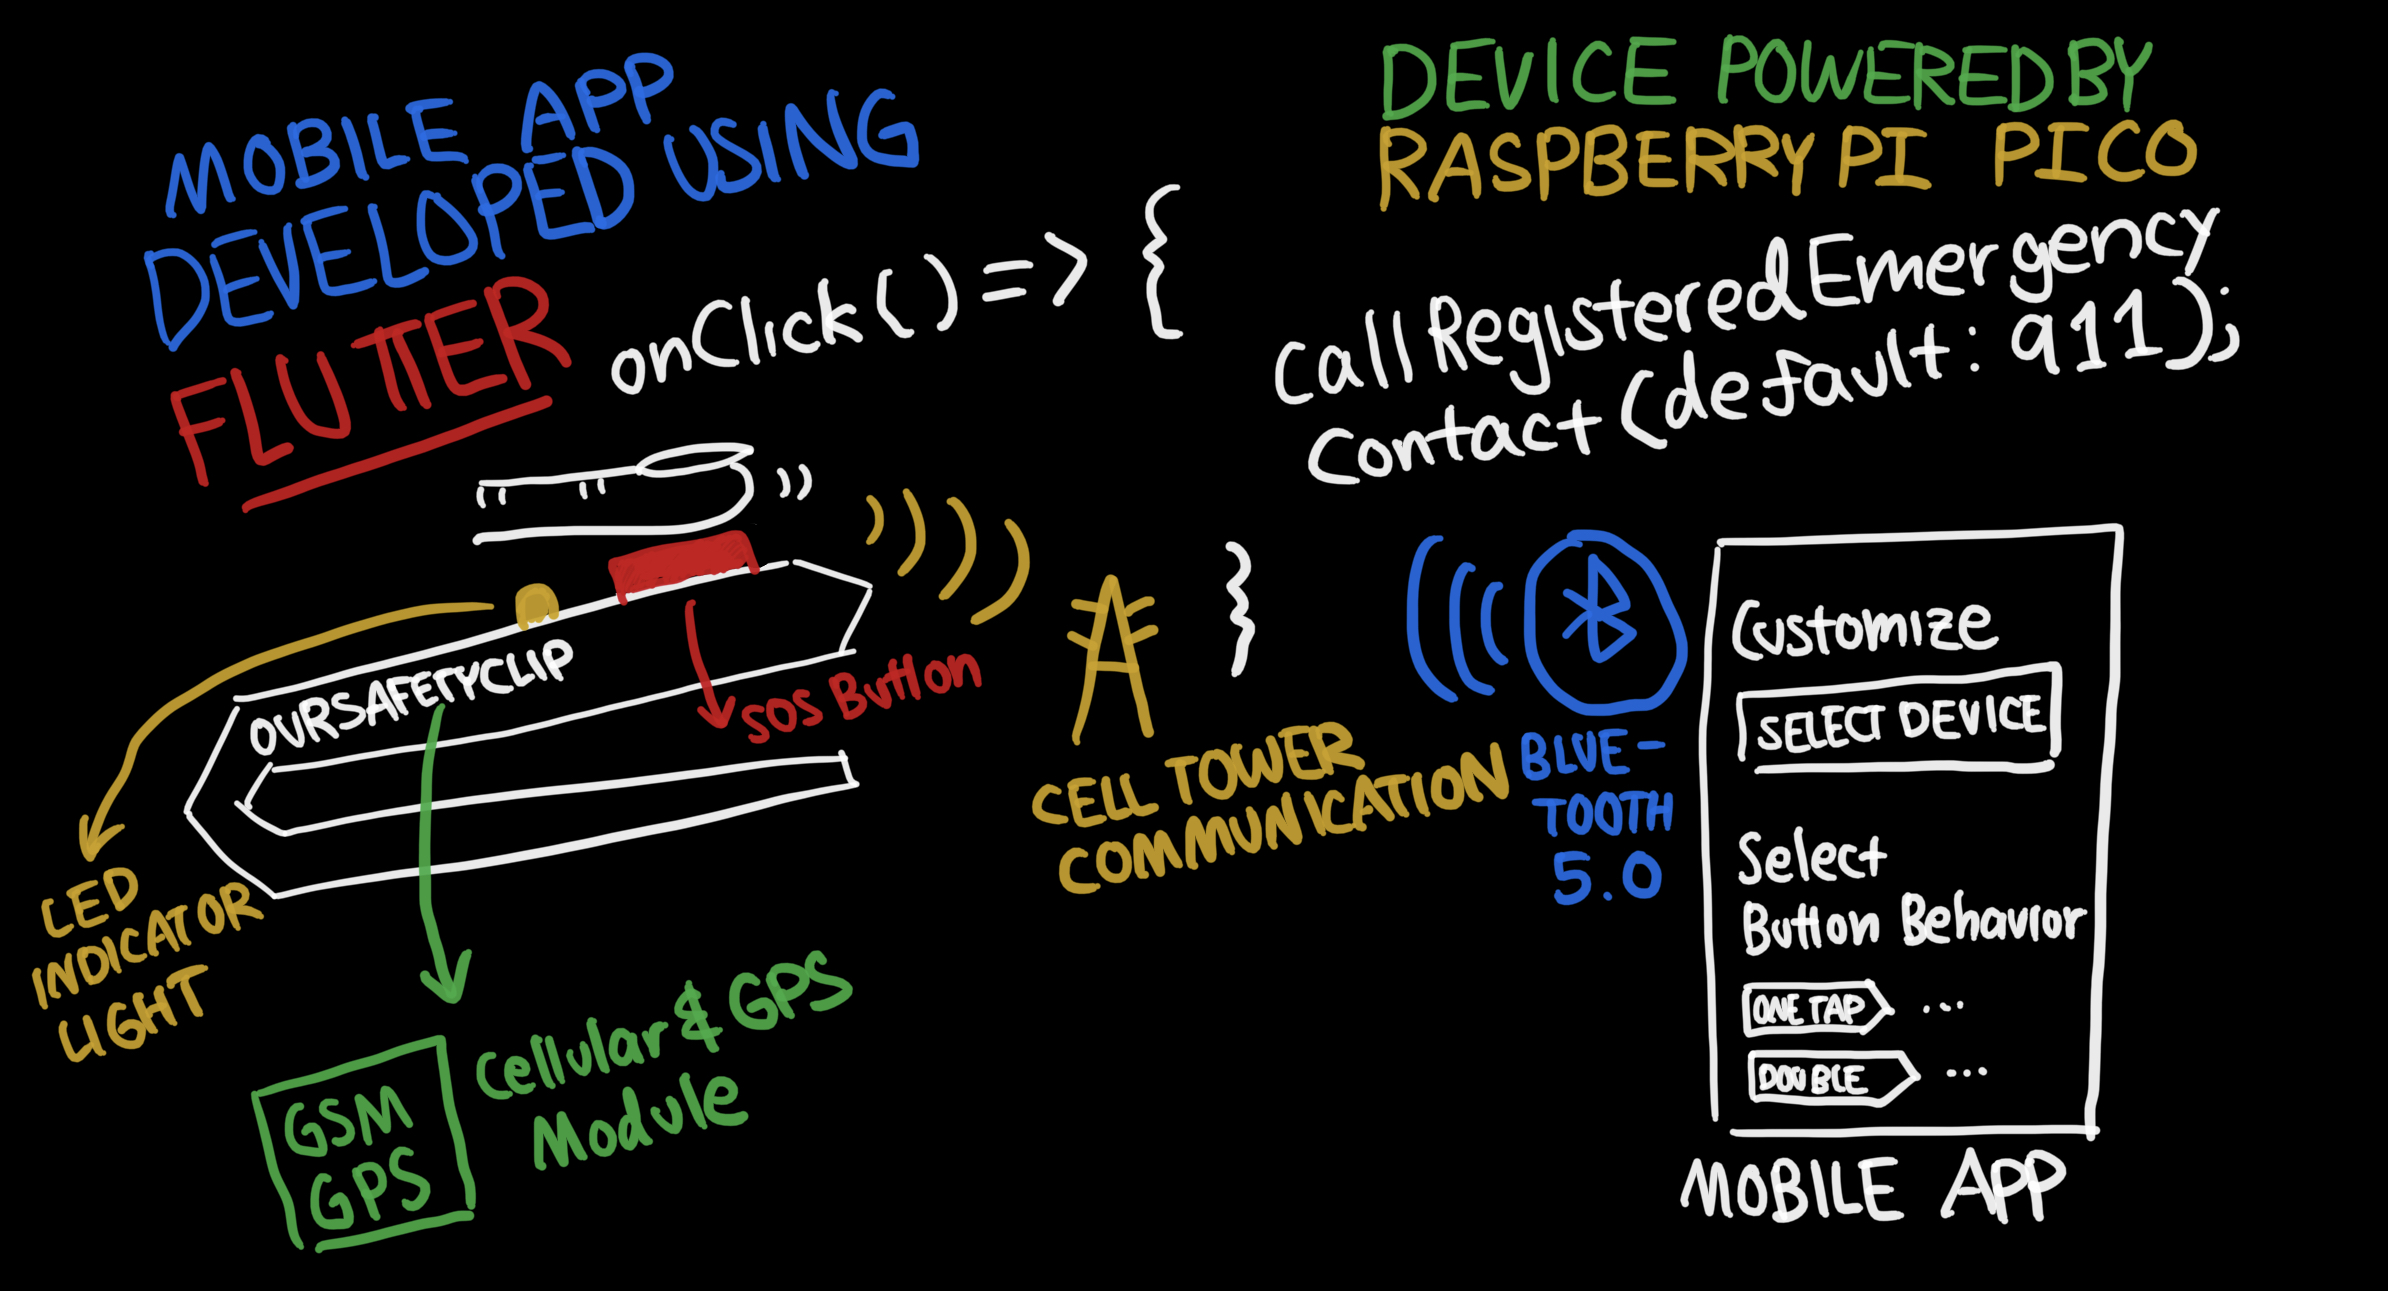 MOBILE APP
DEVELOPED USING
FLUTTER
DEVICE POWERED BY
RASPBERRY PI PICO
onClick() => {
callRegisteredEmergency
Contact (default: 911);
}
OURSAFETYCLIP
SOS Button
LED
INDICATOR
LIGHT
GSM
GPS
Cellular & GPS
Module
CELL TOWER
COMMUNICATION
BLUE-
TOOTH
5.0
Customize
SELECT DEVICE
Select
Button Behavior
ONE TAP ...
DOUBLE ...
MOBILE APP